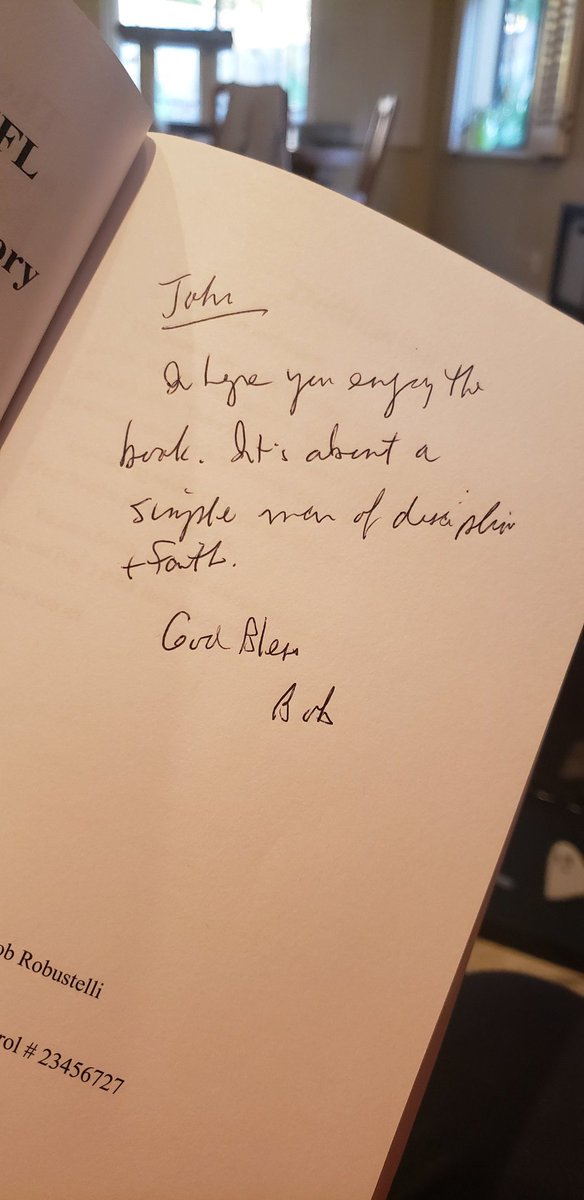 FL
ory
John
I hope you enjoy the
book. It's about a
simple man of disciplin
+ Faith.
God Bless
Bob
ob Robustelli
rol # 23456727